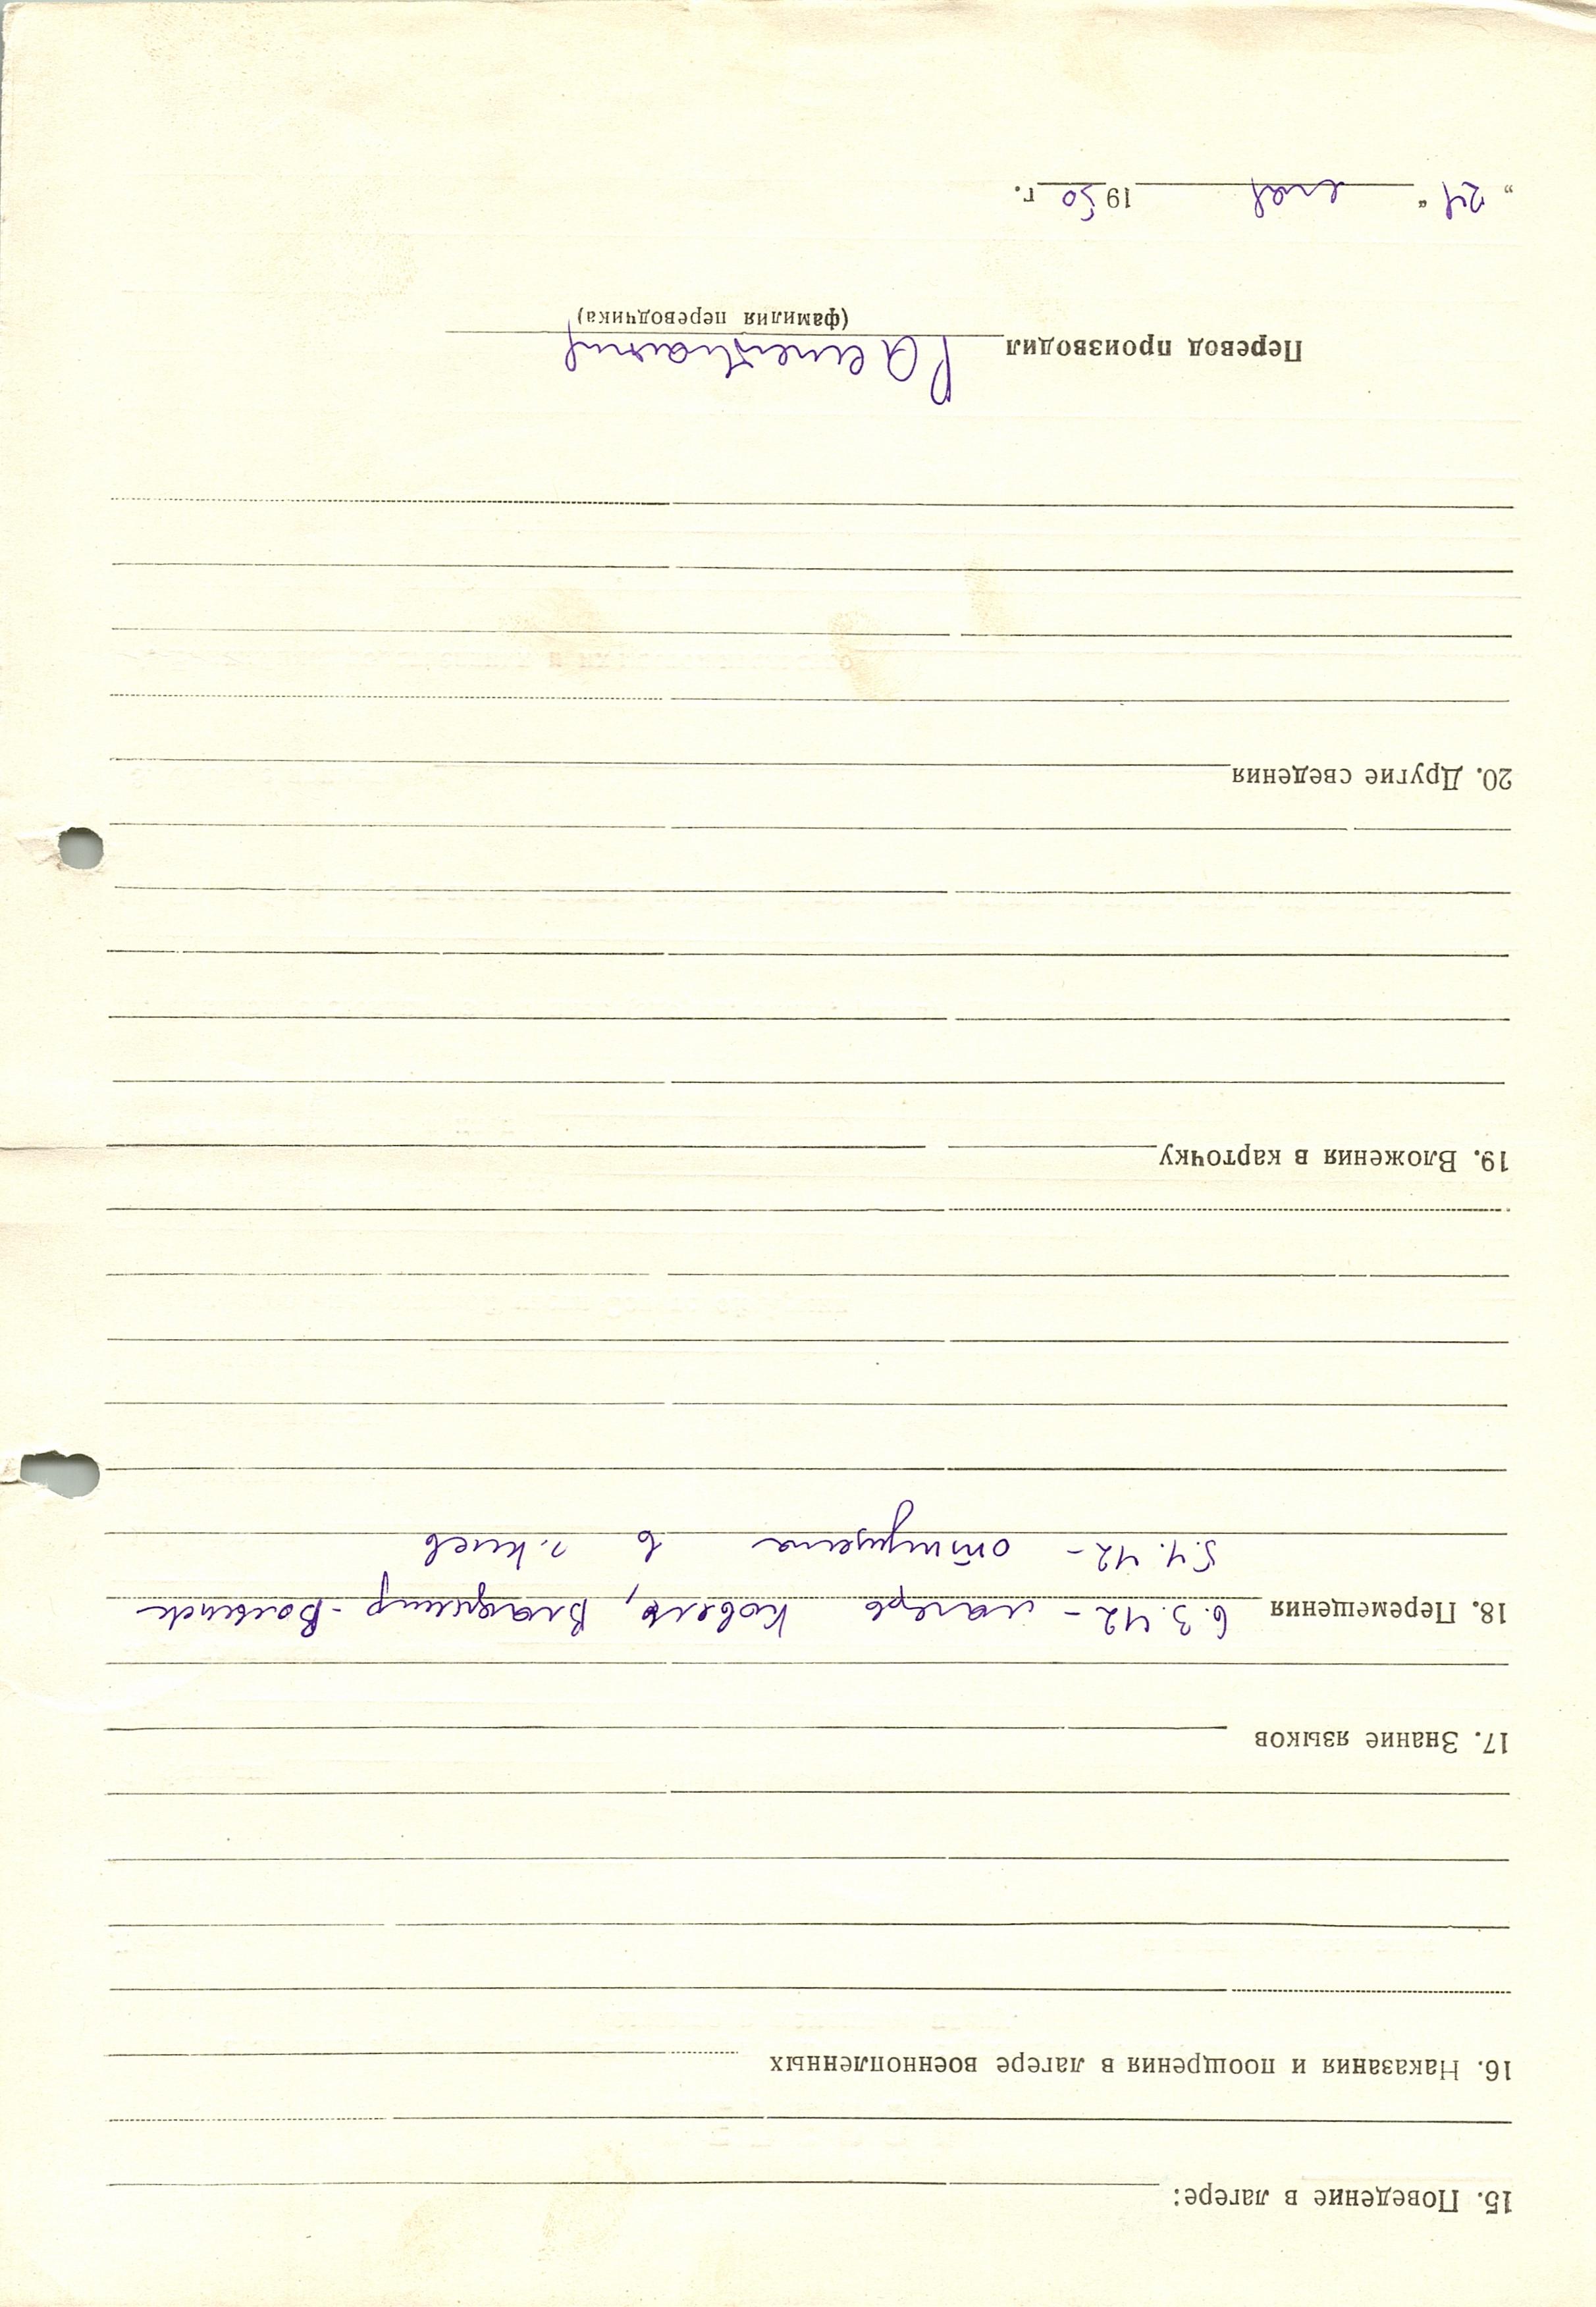 15. Поведение в лагере:
16. Наказания и поощрения в лагере военнопленных
17. Знание языков
18. Перемещения 6.3.42 - лагерь Ковель, Владимир-Волынск
5.4.42 - отпущена в г. Киев
19. Вложения в карточку
20. Другие сведения
Перевод производил
(фамилия переводчика)
„24“ 1950 г.